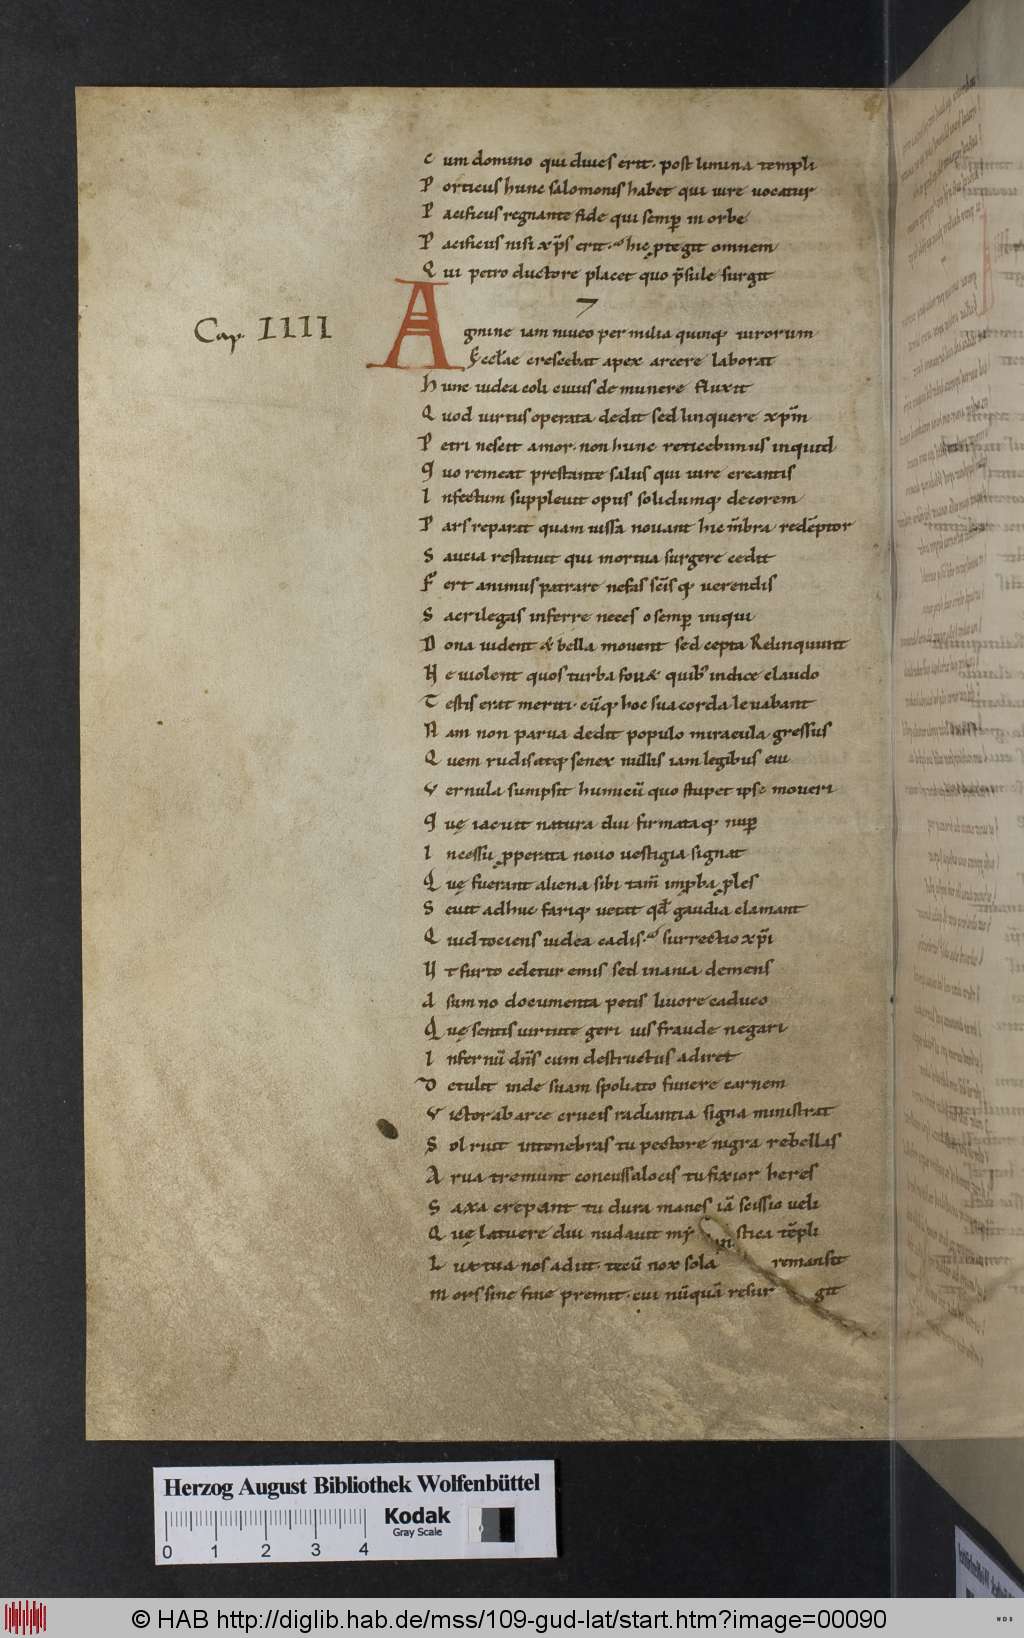 C um domino qui diues erit. post limina templi
P orticus hunc salomonis habet qui iure uocatur
P acificus regnante fide qui semp̄ in orbe
P acificus nisi xp̄s erit. hic ptegit omnem
Q ui petro ductore placet quo p̄sule surgit
Cap. IIII
A gmine iam niueo per milia quinq; uirorum
Eccl̄ae crescebat apex arcere laborat
H unc iudea coli cuius de munere fluxit
Q uod uirtus operata dedit sed linquere xp̄m
P etri nescit amor. non hunc reticebimus inquid
q uo remeat prestante salus qui iure creantis
I nfectum suppleuit opus solidumq; decorem
P ars reparat quam iussa nouant hic m̄bra redēptor
S aucia restituit qui mortua surgere cedit
F ert animus patrare nefas scīsq; uerendis
S acrilegas inferre neces o semp̄ iniqui
D ona uident & bella mouent sed cepta Relinquunt
N e uiolent quos turba fou& quib; indice claudo
T estis erat meriti. cūq; hoc sua corda leuabant
N am non parua dedit populo miracula gressus
Q uem rudis atq; senex nullis iam legibus eui
V ernula sumpsit humi cū quo stupet ipse moueri
q uę iacuit natura diu firmataq; nup̄
I ncessu pperata nouo uestigia signat
Q uę fuerant aliena sibi tam̄ impba ples
S euit adhuc fariq; uetit qd̄ gaudia clamant
Q uid tociens iudea cadis. surrectio xp̄i
U t furto celetur emis sed inania demens
d sum no documenta petis liuore caduco
Q uę sentis uirtute geri uis fraude negari
I nfernū dn̄s cum destructus adiret
D etulit inde suam spoliato funere carnem
V ictor ab arce crucis radiantia signa ministrat
S ol ruit in tenebras tu pectore nigra rebellas
A rua tremunt concussa locis tu fixior heres
S axa crepant tu dura manes iā scissio ueli
Q uę latuere diu nudauit mystica tēpli
L ux tua nos adiit. tecū nox sola remansit
M ors sine fine premit. cui nūquā resurgit
Herzog August Bibliothek Wolfenbüttel
Kodak
Gray Scale
0 1 2 3 4
© HAB http://diglib.hab.de/mss/109-gud-lat/start.htm?image=00090